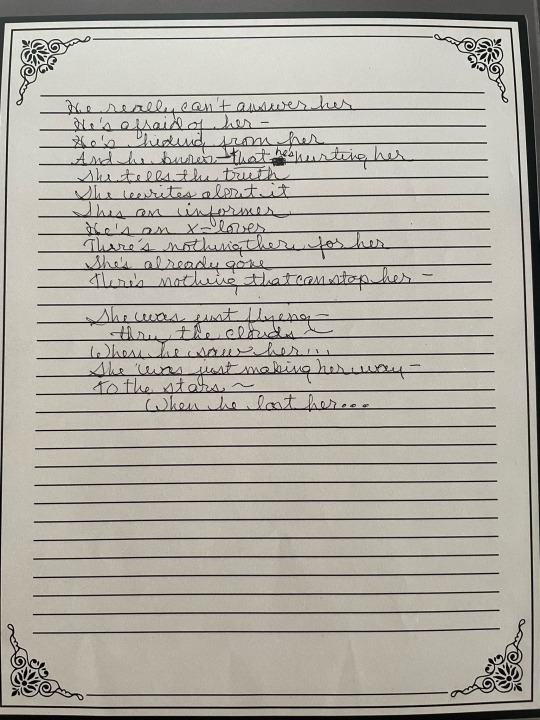 He really can't answer her
He's afraid of her -
He's hiding from her
And he knows that he's hurting her
She tells the truth
She writes about it
Shes an informer
He's an x-lover
There's nothing there for her
She's already gone
There's nothing that can stop her -
She was just flyeng -
thru the clouds ~
When he saw her...
She was just making her way -
To the stars ~
When he lost her...